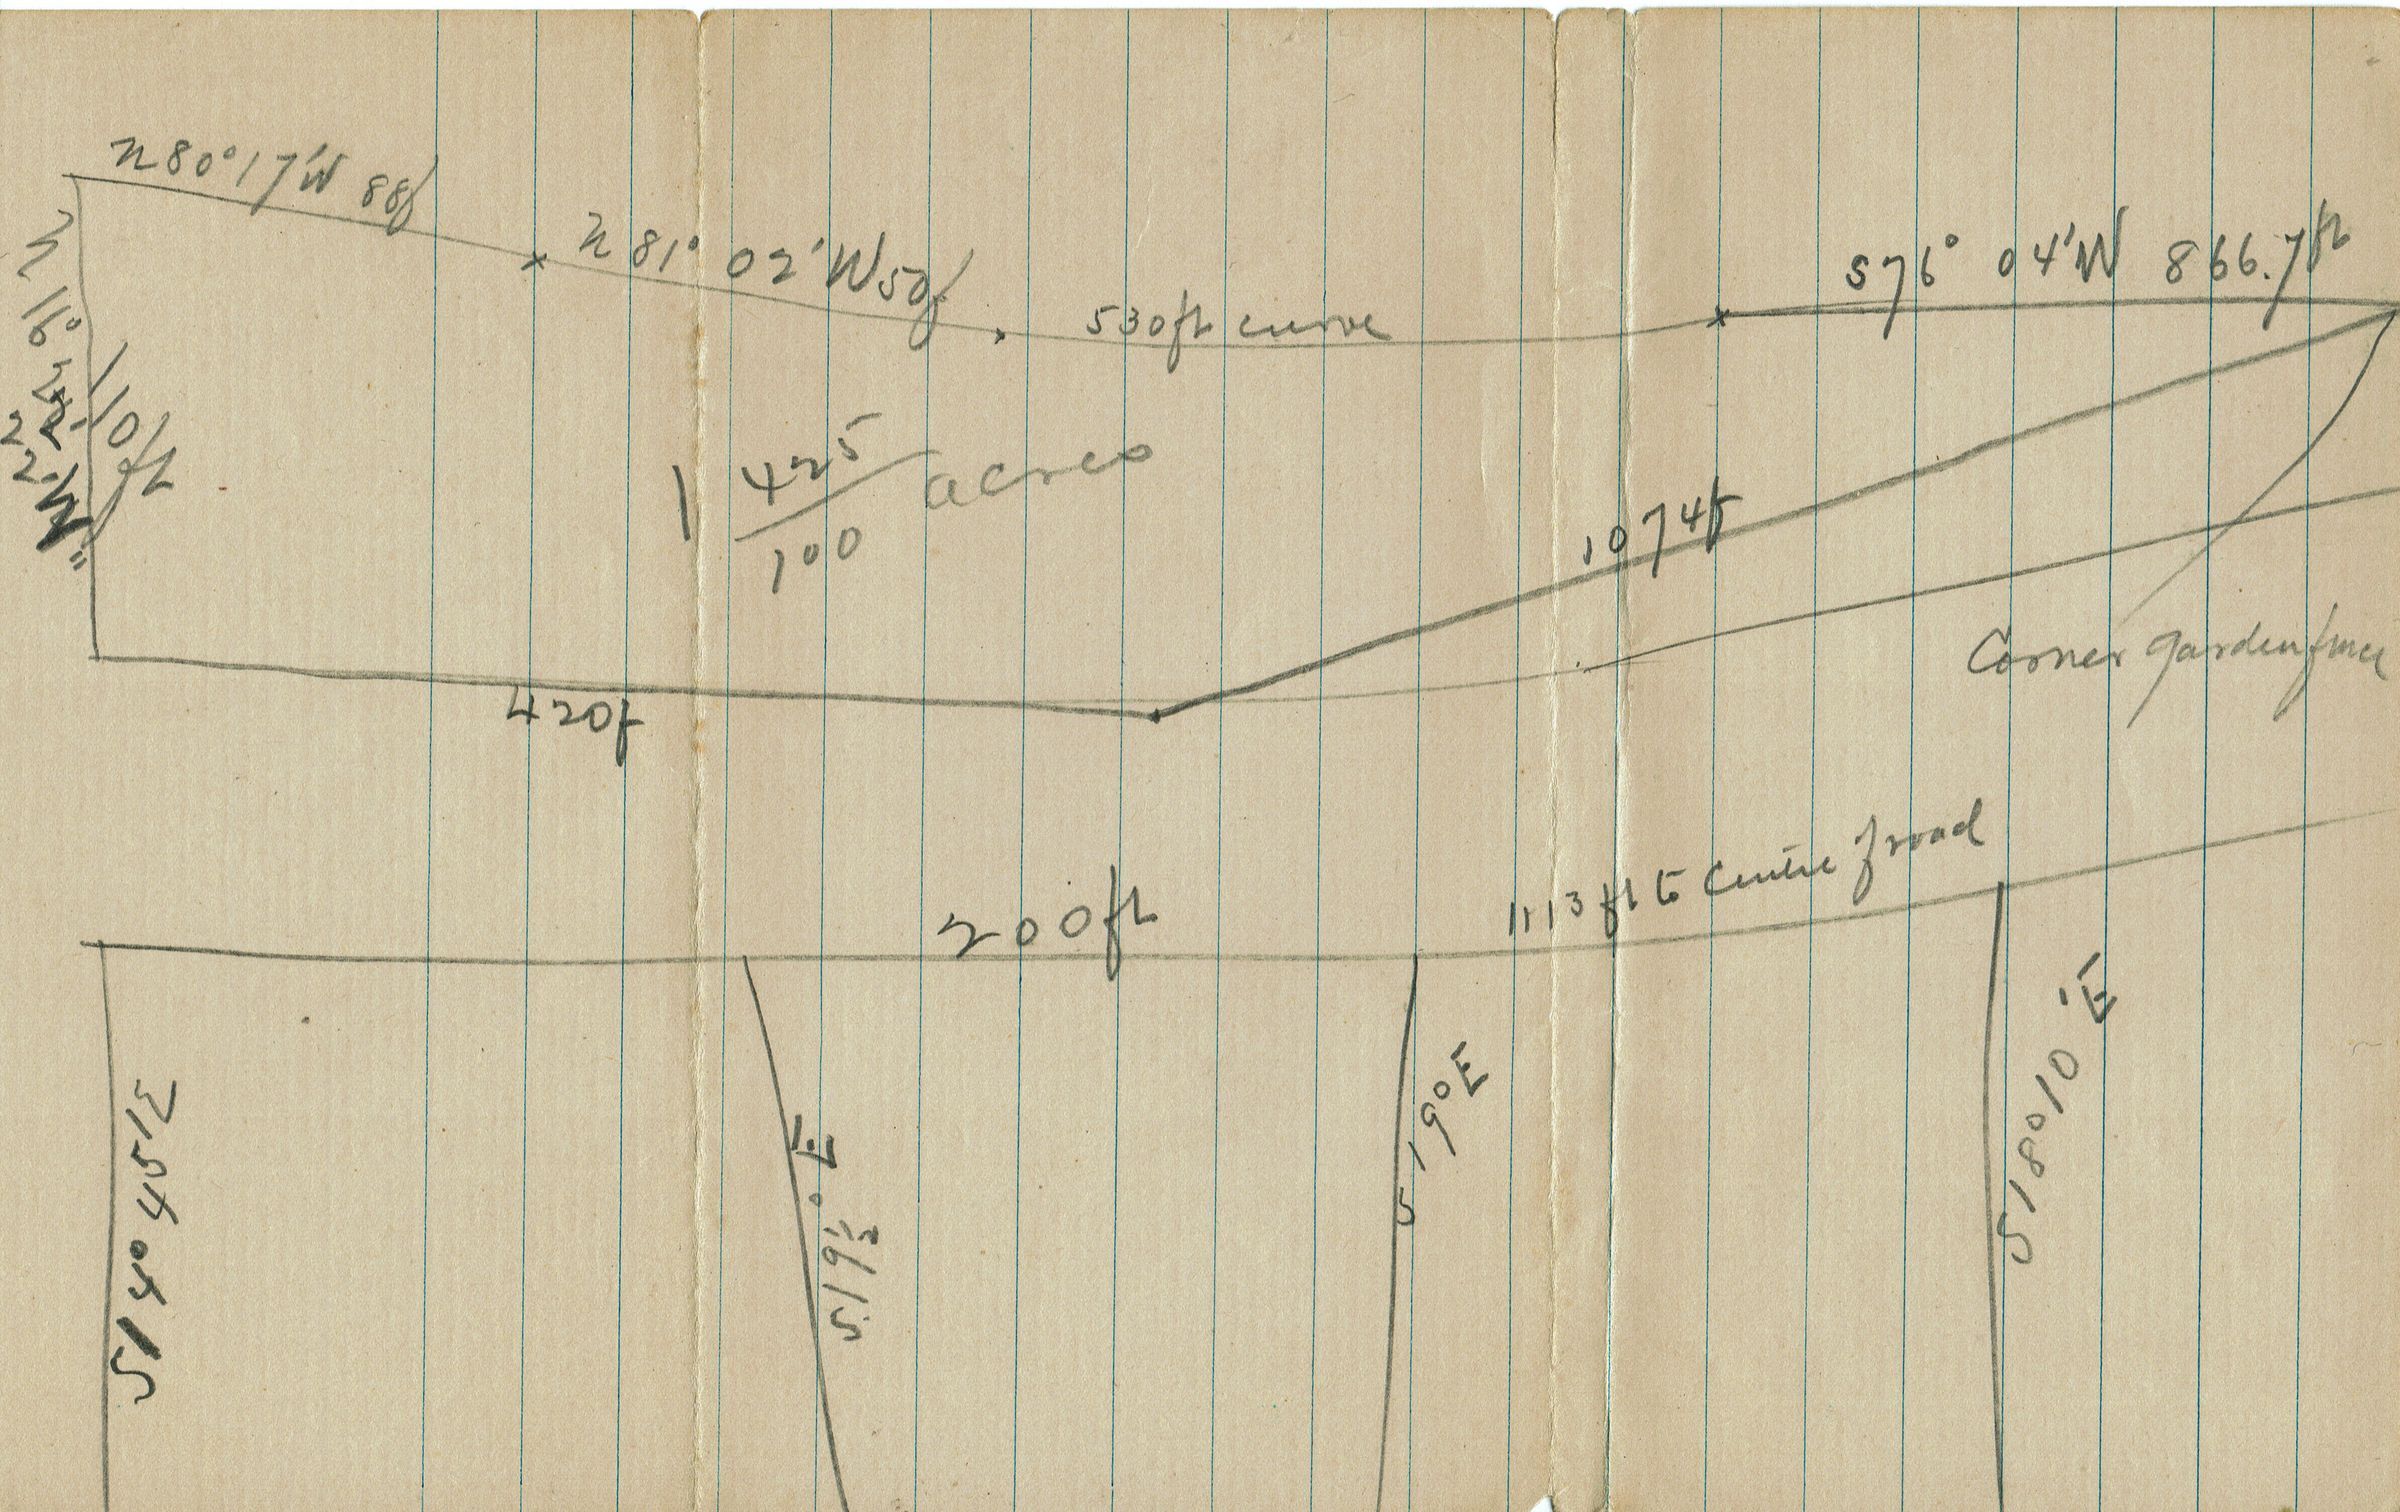 N 80° 17' W 88f
N 81° 02' W 50f
530ft curve
S 76° 04' W 866.7 ft
110 ft
1 425/100 acres
1074f
Corner garden fence
420f
200 ft
1113 ft to Centre of road
S 14° 45' E
S. 19 1/2° E
S 19° E
S 18° 10' E